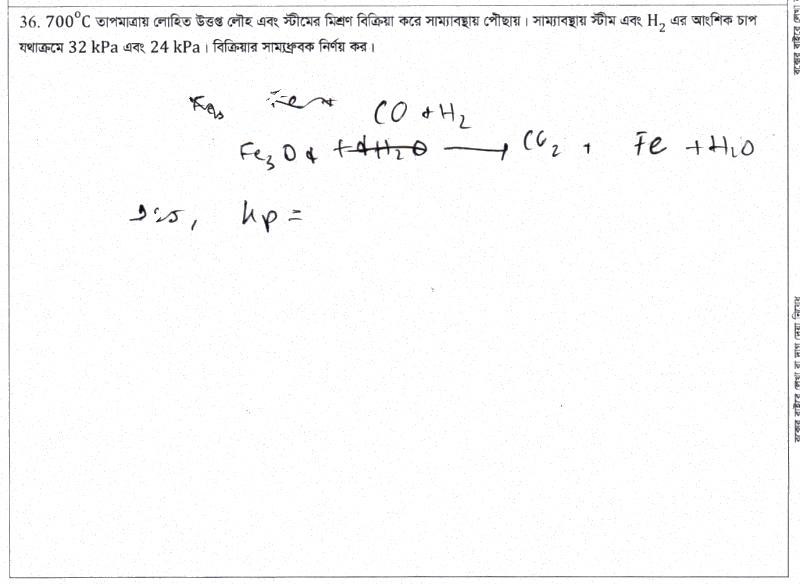 36. 700⁰C তাপমাত্রায় লোহিত উত্তপ্ত লৌহ এবং স্টীমের মিশ্রণ বিক্রিয়া করে সাম্যাবস্থায় পৌছায়। সাম্যাবস্থায় স্টীম এবং H₂ এর আংশিক চাপ
যথাক্রমে 32 kPa এবং 24 kPa। বিক্রিয়ার সাম্যধ্রুবক নির্ণয় কর।
CO + H₂
Fe₃O₄ + 4H₂O ⟶ CO₂ + Fe + H₂O
kp =